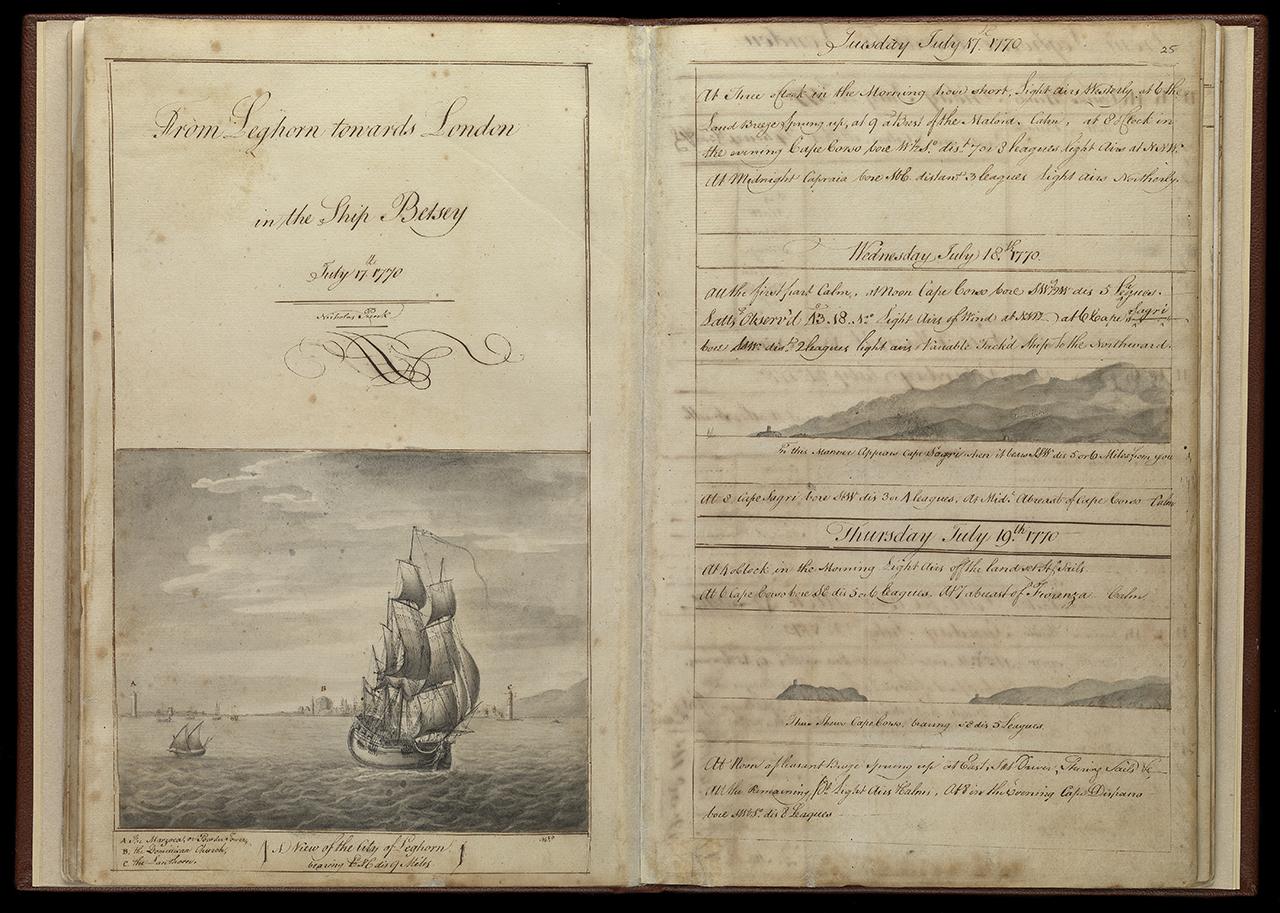 From Leghorn towards London
in the Ship Betsey
July 17th 1770
Nicholas Pocock
A
B
C
A. The Marzocco, or Powder Tower,
B. the Dominican Church,
C. the Lanthorn.
A View of the City of Leghorn
bearing EbN dis 9 Miles
Tuesday July 17th 1770
25
At Three oClock in the Morning hove short, Light airs Westerly, at 6 the
Land Breeze sprung up, at 9 aBrest of the Malora. Calm, at 8 oClock in
the evening Cape Corso bore WbSo dist 7 or 8 leagues light Airs at NNW.
At Midnight Capraia bore distant 3 leagues light airs Northerly.
Wednesday July 18th 1770.
All the first part Calm, at Noon Cape Corso bore SWbW dis 5 Legues.
Latt Observ'd 43..18..No Light Airs of Wind at NNW at 6 Cape Sagri
bore SSW dist 2 leagues light airs Variable Tack'd Ship to the Northward.
In this Manner Appears Cape Sagri when it bears SSW dis 5 or 6 Miles from you
At 8 Cape Sagri bore SbW dis 3 or 4 leagues, At Midt Abreast of Cape Corso Calm
Thursday July 19th 1770
At 4 oClock in the Morning Light Airs off the land set Stg Sails.
At 6 Cape Corso bore SE dis 5 or 6 Leagues. At 7 abreast of Fiorenza Calm
Thus Shews Cape Corso, bearing SE dis 5 Leagues.
At Noon a pleasant Breeze sprung up at East, Set Driver, Stearing Sails &c
At the Remaining Pt Light Airs & Calms, At 8 in the Evening Cape Dispano
bore SWbSo dis 8 Leagues